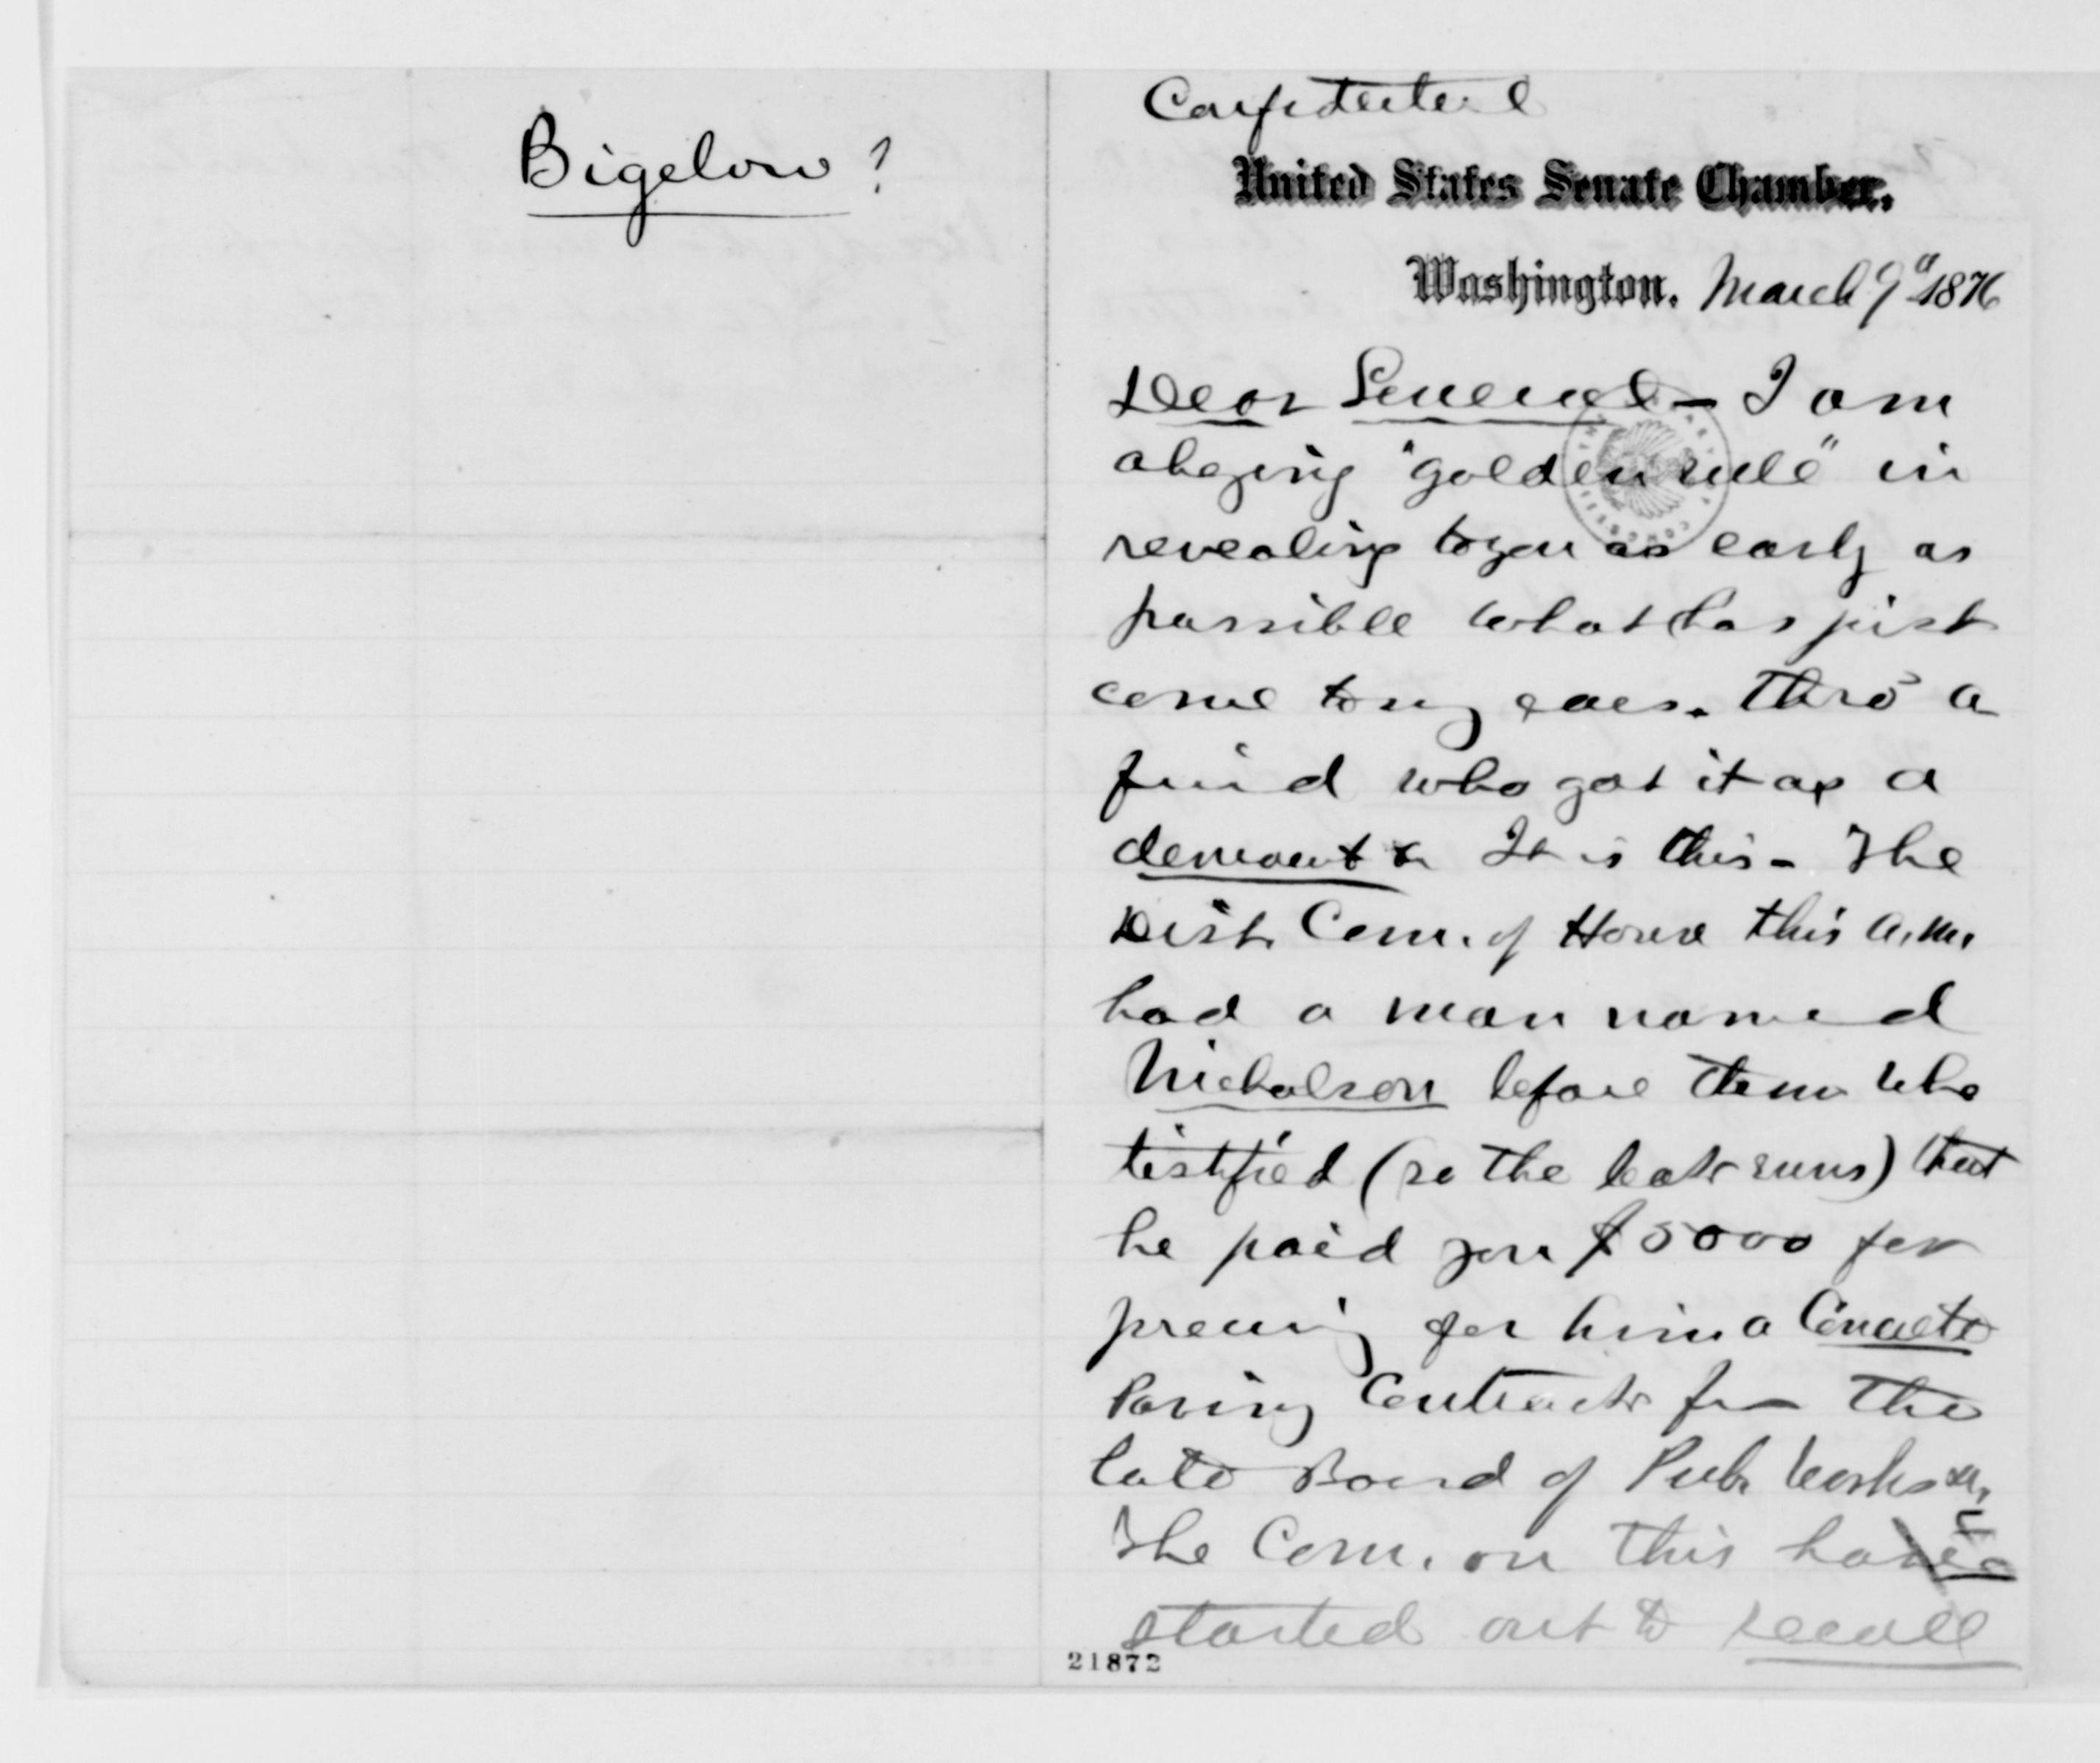 Bigelow ?
Confidential
United States Senate Chamber.
Washington, March 9" 1876
Dear General – I am
obeying "golden rule" in
revealing to you as early as
possible what has just
come to my ears. thro' a
friend who got it as a
It is this – The
Dist. Com. of House this a.m.
had a man named
Nicholson before them who
testified (so the leak runs) that
he paid you $5000 for
for him a Concrete
Paving Contract from the
late Board of Pub. Works
The Com. on this have
started out to recall
21872